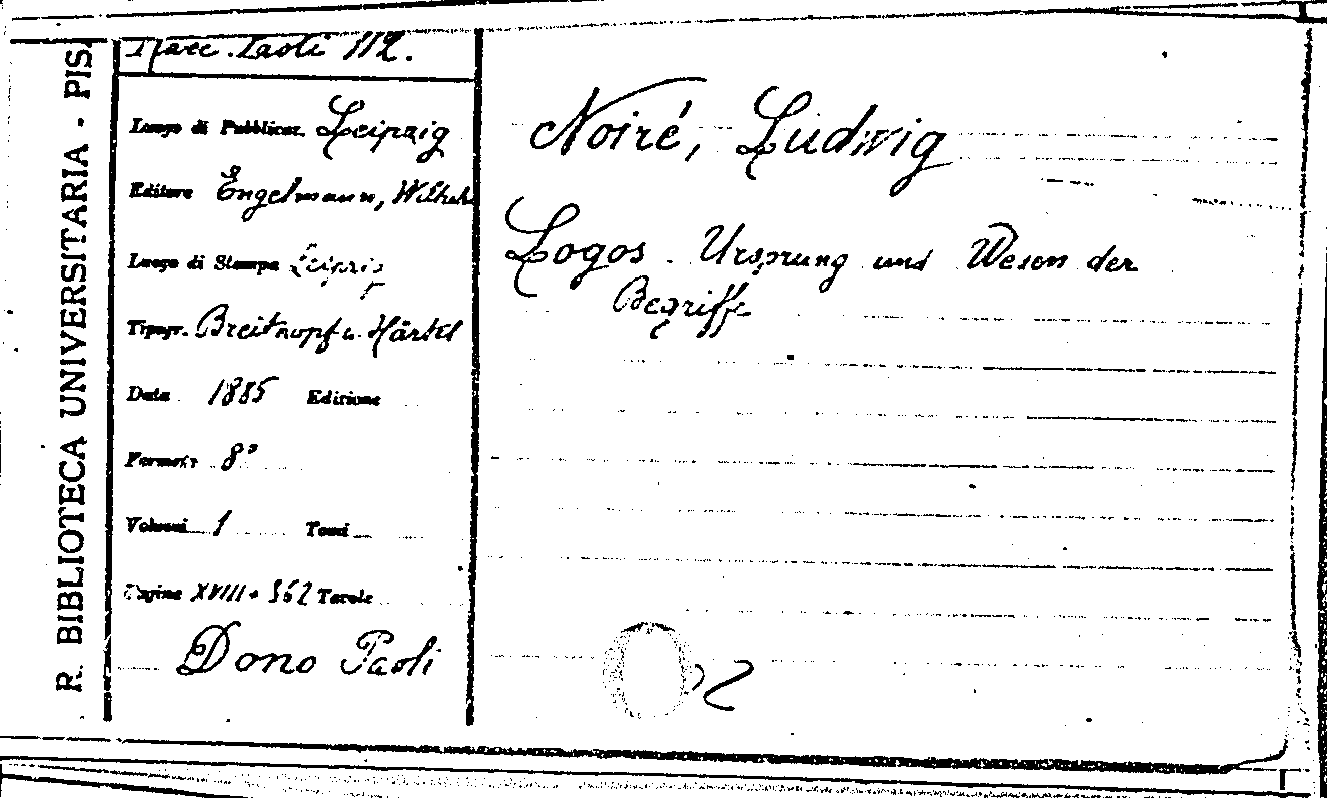 R. BIBLIOTECA UNIVERSITARIA - PISA
Misc. Paoli 112.
Luogo di Pubblicaz. Leipzig
Editore Engelmann, Wilhelm
Luogo di Stampa Leipzig
Tipogr. Breitkopf u. Härtel
Data 1885 Edizione
Formato 8°
Volumi 1 Tomi
Pagine XVIII + 362 Tavole
Dono Paoli
Noiré, Ludwig
Logos. Ursprung und Wesen der
Begriffe